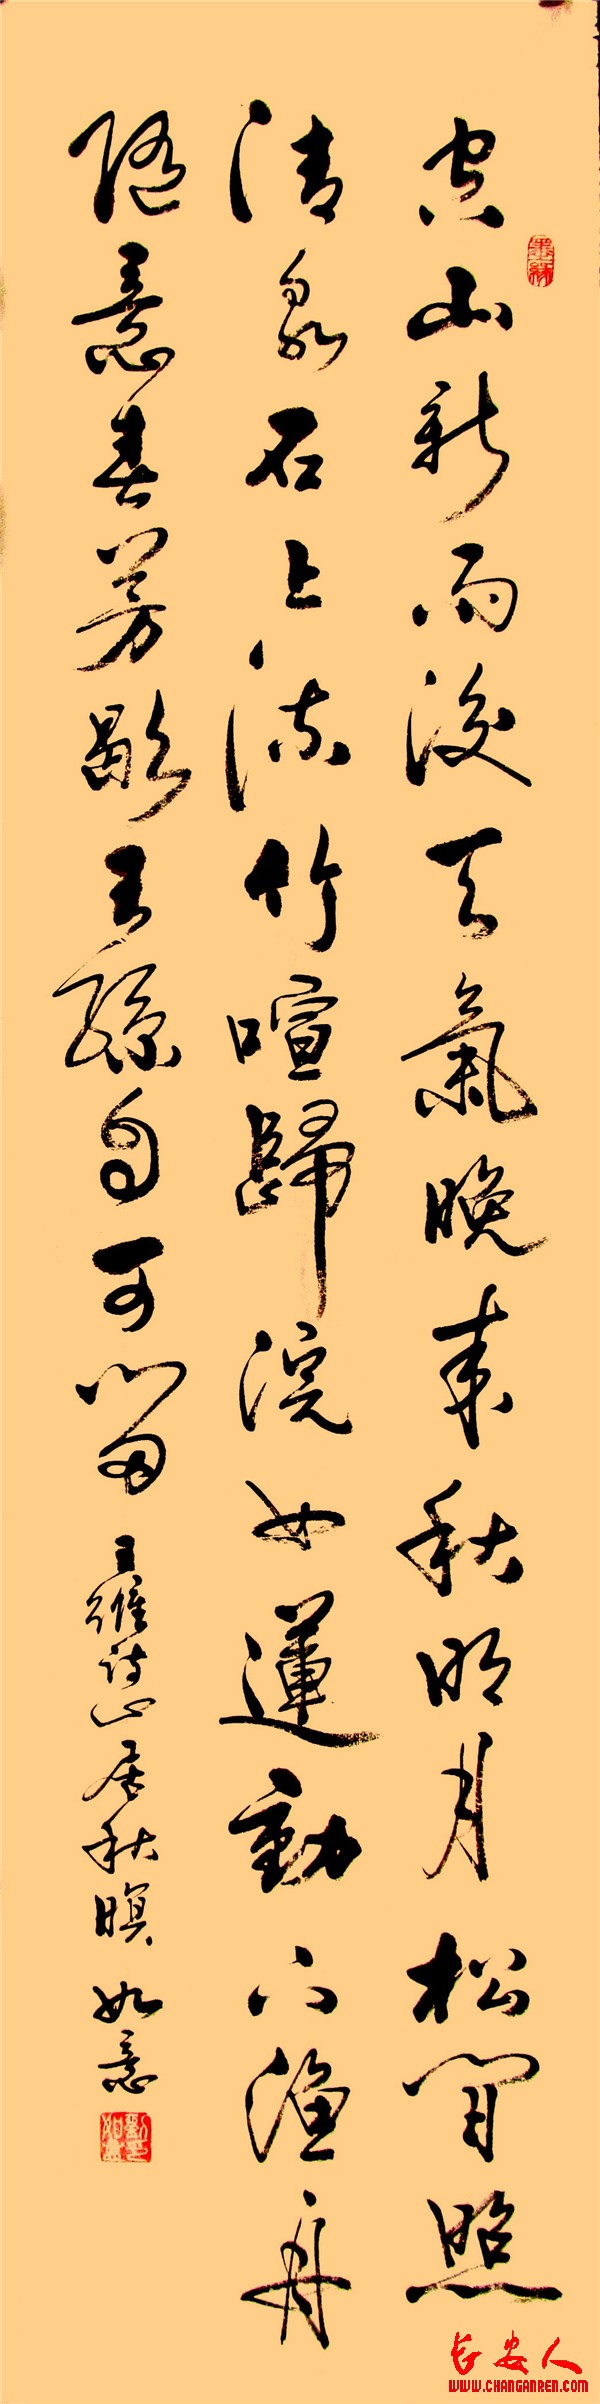 空山新雨後天氣晚来秋明月松間照
清泉石上流竹喧歸浣女蓮動下漁舟
随意春芳歇王孫自可留
王維诗山居秋暝 如意
長安人
WWW.CHANGANREN.COM